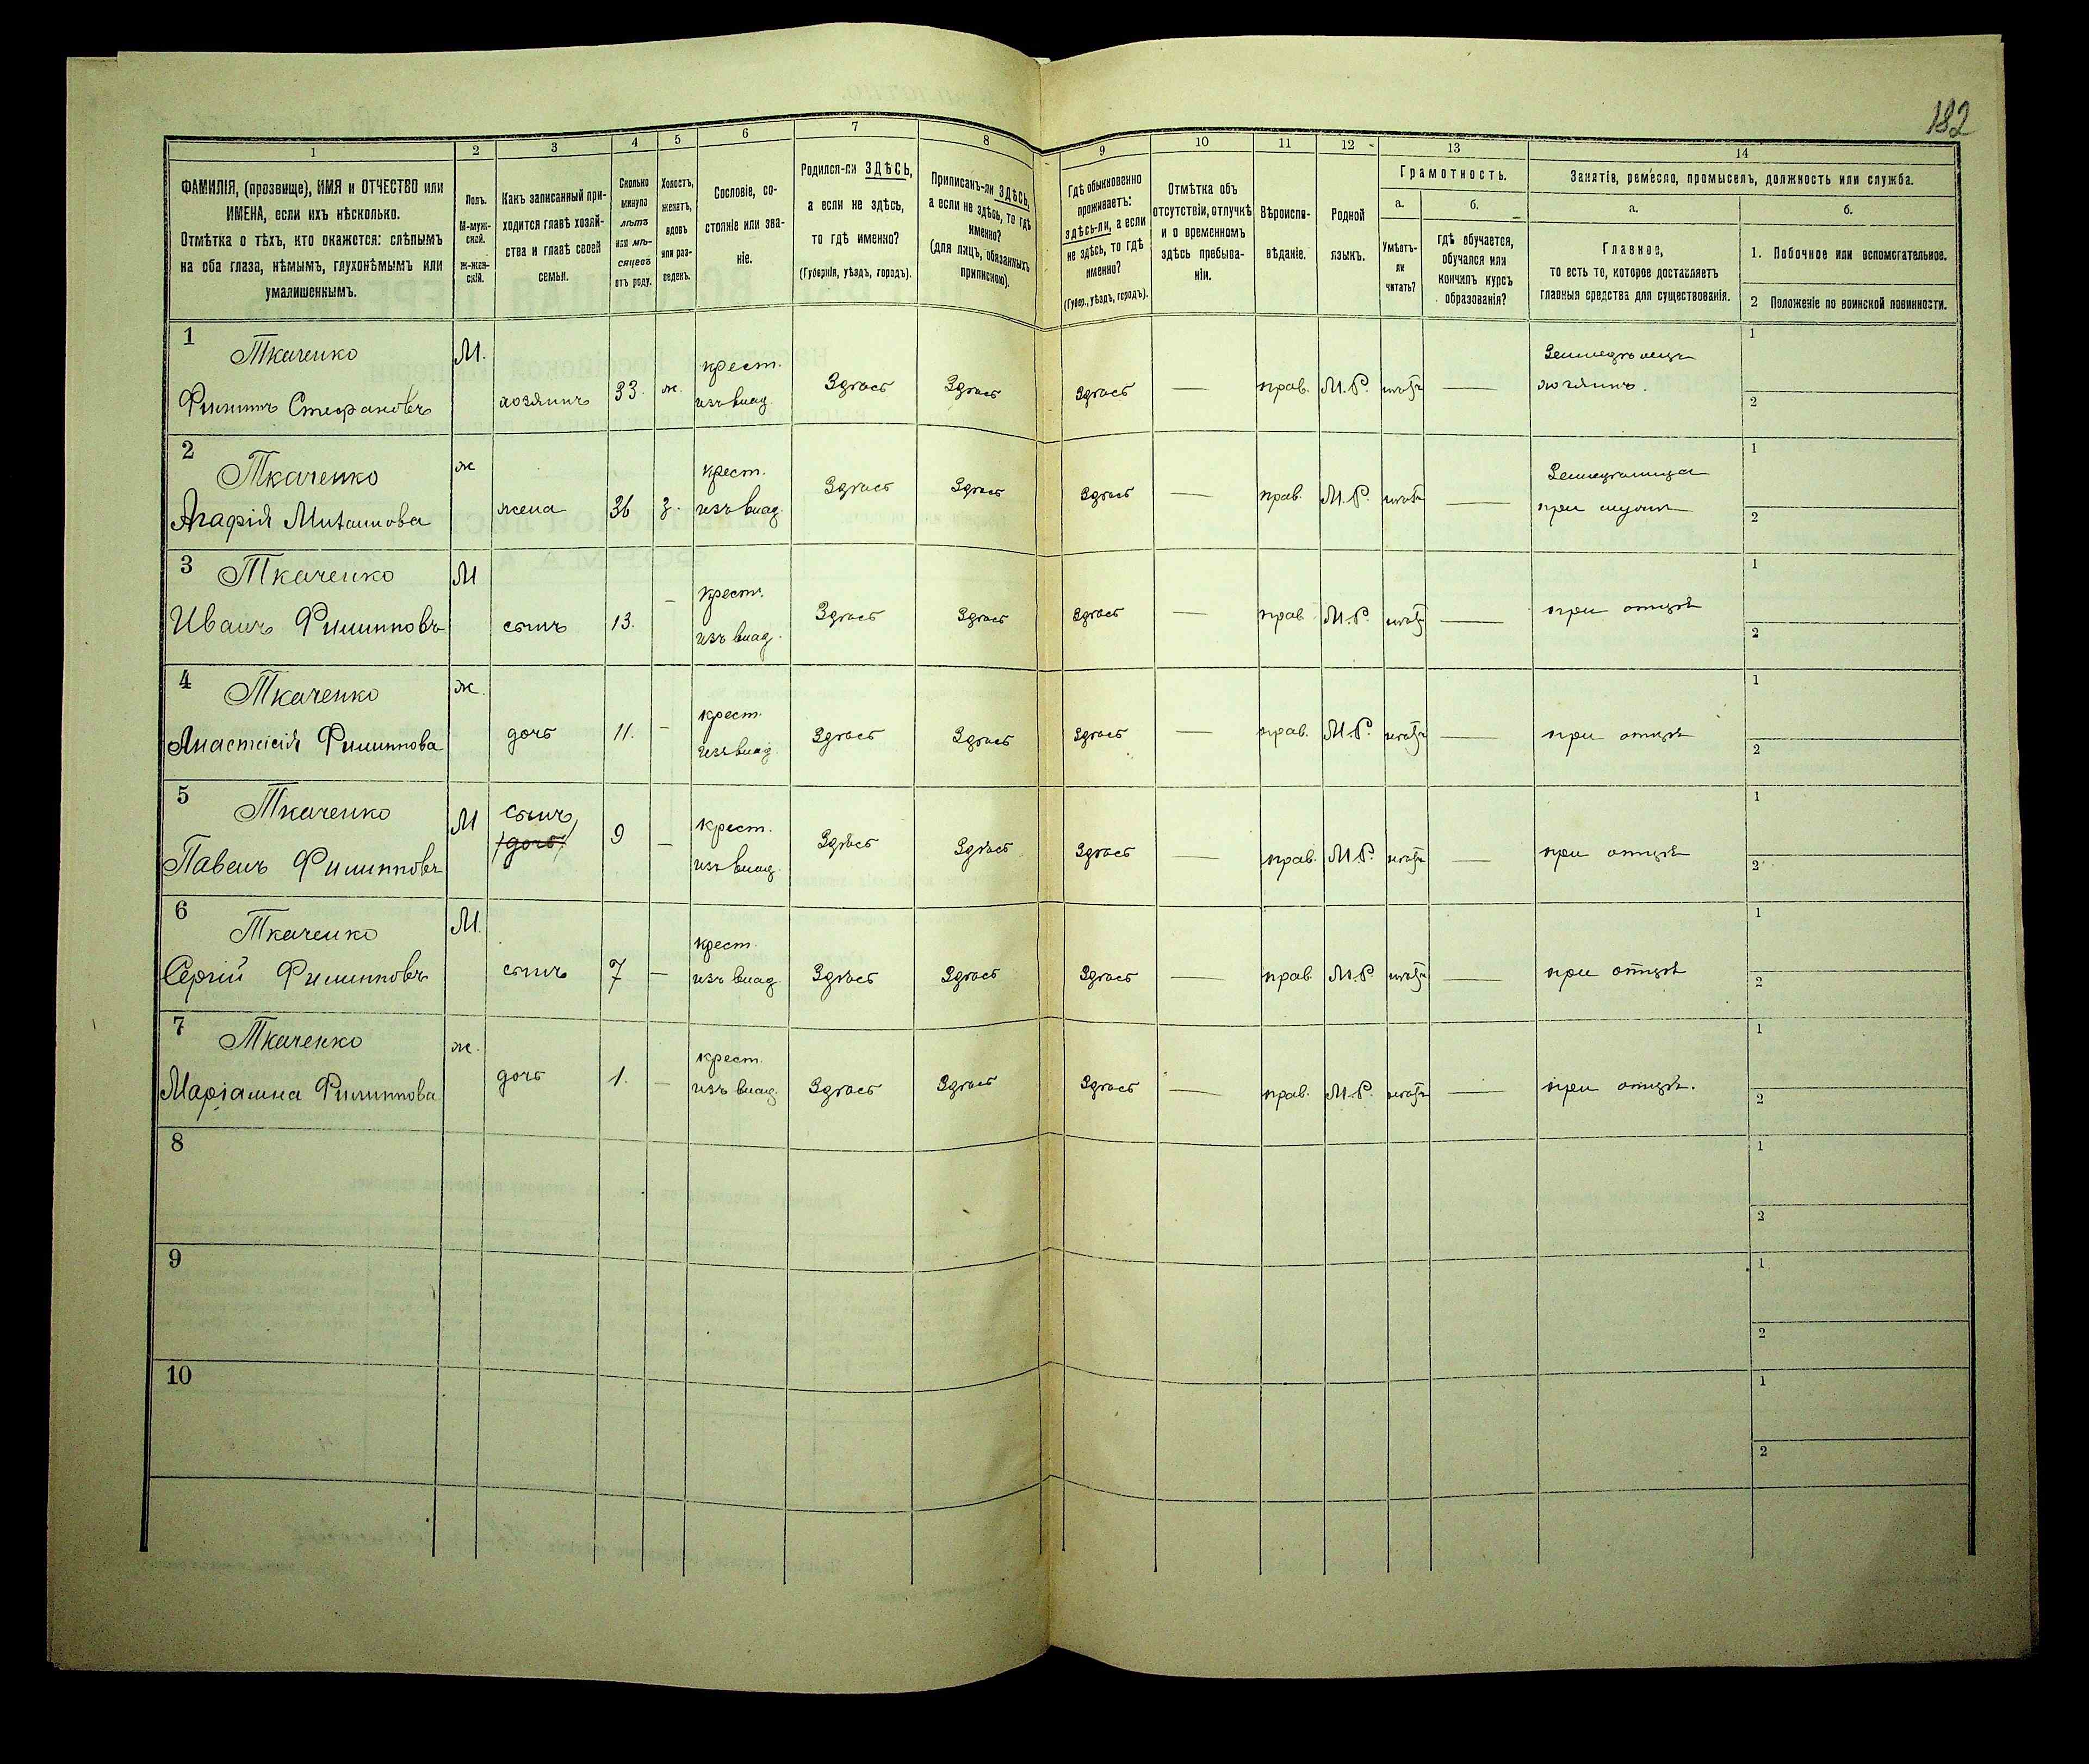 182
1
2
3
4
5
6
7
8
9
10
11
12
13
14
ФАМИЛІЯ, (прозвище), ИМЯ и ОТЧЕСТВО или
ИМЕНА, если ихъ нѣсколько.
Отмѣтка о тѣхъ, кто окажется: слѣпымъ
на оба глаза, нѣмымъ, глухонѣмымъ или
умалишеннымъ.
Полъ.
М-муж-
ской.
Ж-жен-
скій.
Какъ записанный при-
ходится главѣ хозяй-
ства и главѣ своей
семьи.
Сколько
минуло
лѣтъ
или мѣ-
сяцевъ
отъ роду.
Холостъ,
женатъ,
вдовъ
или раз-
веденъ.
Сословіе, со-
стояніе или зва-
ніе.
Родился-ли ЗДѢСЬ,
а если не здѣсь,
то гдѣ именно?
(Губернія, уѣздъ, городъ).
Приписанъ-ли ЗДѢСЬ,
а если не здѣсь, то гдѣ
именно?
(для лицъ, обязанныхъ
припискою).
Гдѣ обыкновенно
проживаетъ:
здѣсь-ли, а если
не здѣсь, то гдѣ
именно?
(Губер., уѣздъ, городъ).
Отмѣтка объ
отсутствіи, отлучкѣ
и о временномъ
здѣсь пребыва-
ніи.
Вѣроиспо-
вѣданіе.
Родной
языкъ.
Грамотность.
а.
Умѣетъ-
ли
читать?
б.
гдѣ обучается,
обучался или
кончилъ курсъ
образованія?
Занятіе, ремесло, промыселъ, должность или служба.
а.
Главное,
то есть то, которое доставляетъ
главныя средства для существованія.
б.
1. Побочное или вспомогательное.
2 Положеніе по воинской повинности.
1
Ткаченко
Филипъ Стефановъ
М.
хозяинъ
33.
ж.
крест.
изъ влад.
Здѣсь
Здѣсь
Здѣсь
—
прав.
М.Р.
нѣтъ
—
Земледѣлецъ
хозяинъ.
1
2
2
Ткаченко
Агафія Михаилова
ж
жена
36
з.
крест.
изъ влад.
Здѣсь
Здѣсь
Здѣсь
—
прав.
М.Р.
нѣтъ
—
при мужѣ
1
2
3
Ткаченко
Иванъ Филипповъ
М
сынъ
13.
—
крест.
изъ влад.
Здѣсь
Здѣсь
Здѣсь
—
прав
М.Р.
нѣтъ
—
при отцѣ
1
2
4
Ткаченко
Анастасія Филиппова
ж.
дочь
11.
—
крест.
изъ влад.
Здѣсь
Здѣсь
Здѣсь
—
прав.
М.Р.
нѣтъ
—
при отцѣ
1
2
5
Ткаченко
Павелъ Филипповъ
М
сынъ
(дочь)
9
—
крест.
изъ влад.
Здѣсь
Здѣсь
Здѣсь
—
прав.
М.Р.
нѣтъ
—
при отцѣ
1
2
6
Ткаченко
Сергій Филипповъ
М.
сынъ
7
—
крест.
изъ влад.
Здѣсь
Здѣсь
Здѣсь
—
прав
М.Р.
нѣтъ
—
при отцѣ
1
2
7
Ткаченко
Маріамна Филиппова
ж.
дочь
1.
—
крест.
изъ влад.
Здѣсь
Здѣсь
Здѣсь
—
прав.
М.Р.
нѣтъ
—
при отцѣ.
1
2
8
1
2
9
1
2
10
1
2